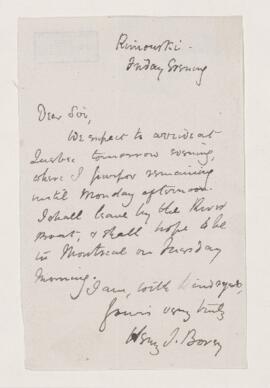 Rimouski.
Friday Evening
Dear Sir,
We expect to arrive at
Quebec tomorrow evening,
where I purpose remaining
until Monday afternoon.
I shall leave by the River
Boat, & shall hope to be
in Montreal on Tuesday
Morning.
I am, with kind regards,
Yours very truly
Henry T. Bovey